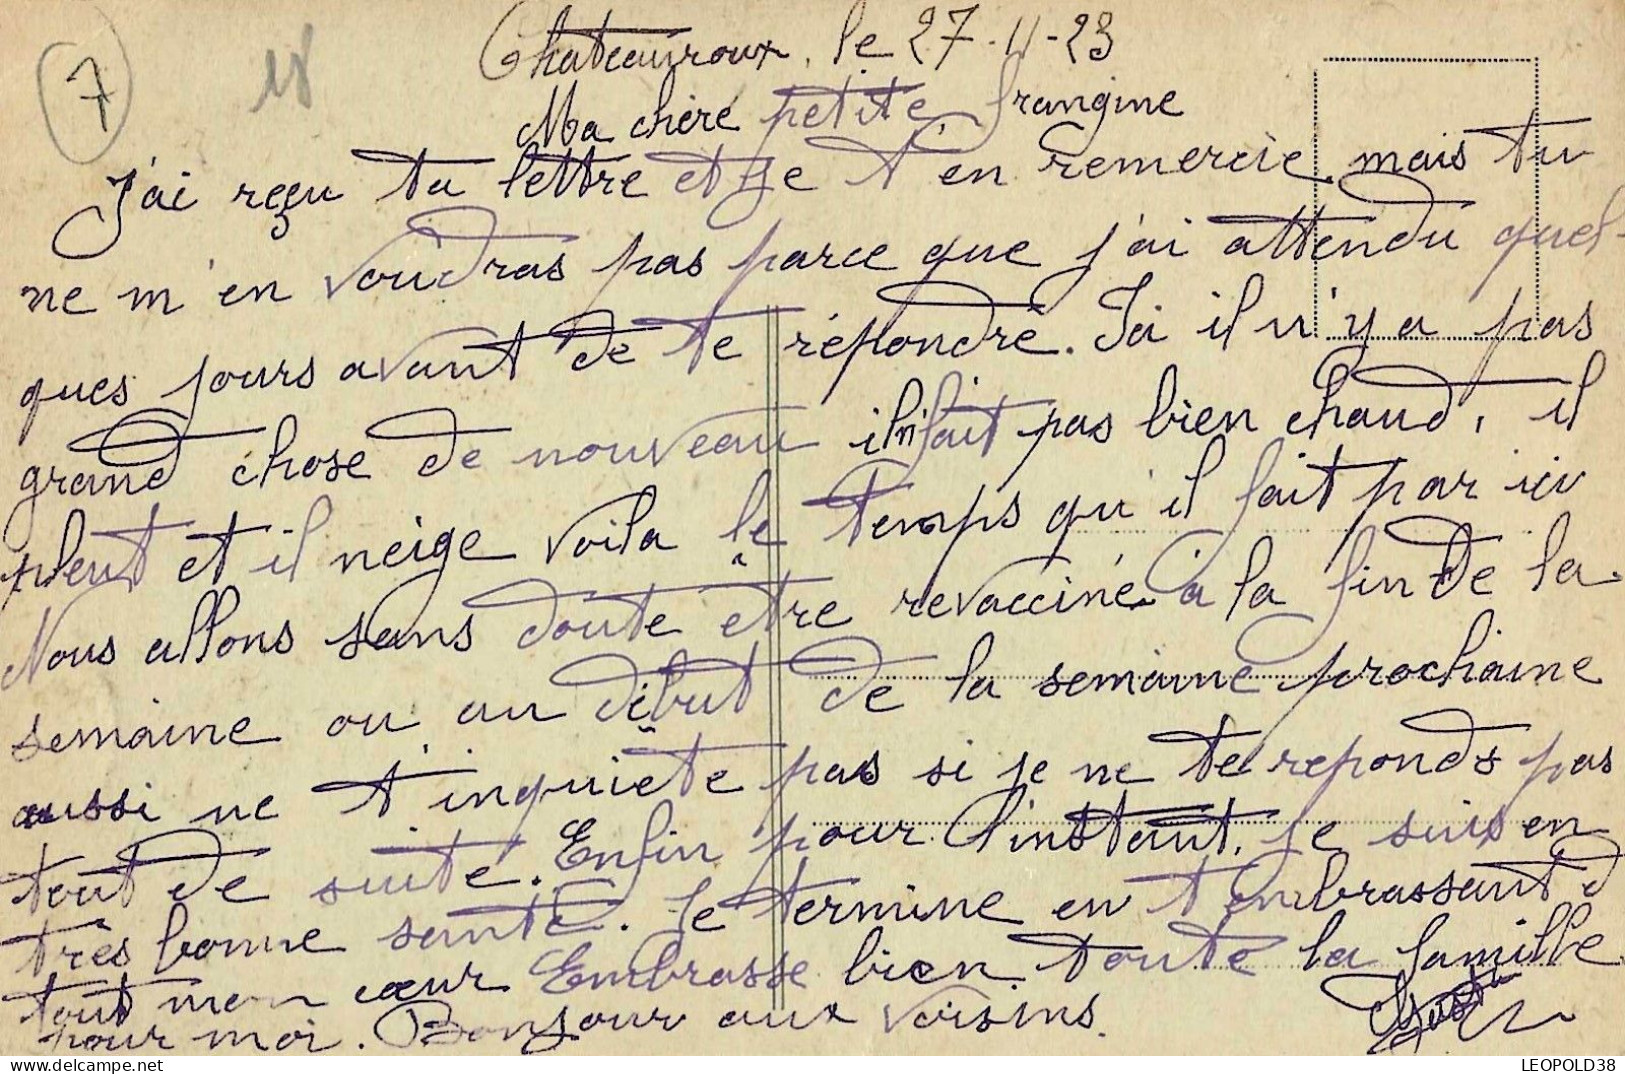 7
18
Chateauroux, le 27-11-23
Ma chère petite frangine
J'ai reçu ta lettre et je t'en remercie mais tu
ne m'en voudras pas parce que j'ai attendu quel-
ques jours avant de te répondre. Ici il n'y a pas
grand chose de nouveau il n'fait pas bien chaud, il
pleut et il neige voila le temps qu'il fait par ici
Nous allons sans doute etre revacciné à la fin de la
semaine ou au début de la semaine prochaine
aussi ne t'inquiète pas si je ne te reponds pas
tout de suite. Enfin pour l'instant, je suis en
très bonne santé. Je termine en t'embrassant d
tout mon cœur Embrasse bien toute la famille
pour moi. Bonjour aux voisins.
LEOPOLD38